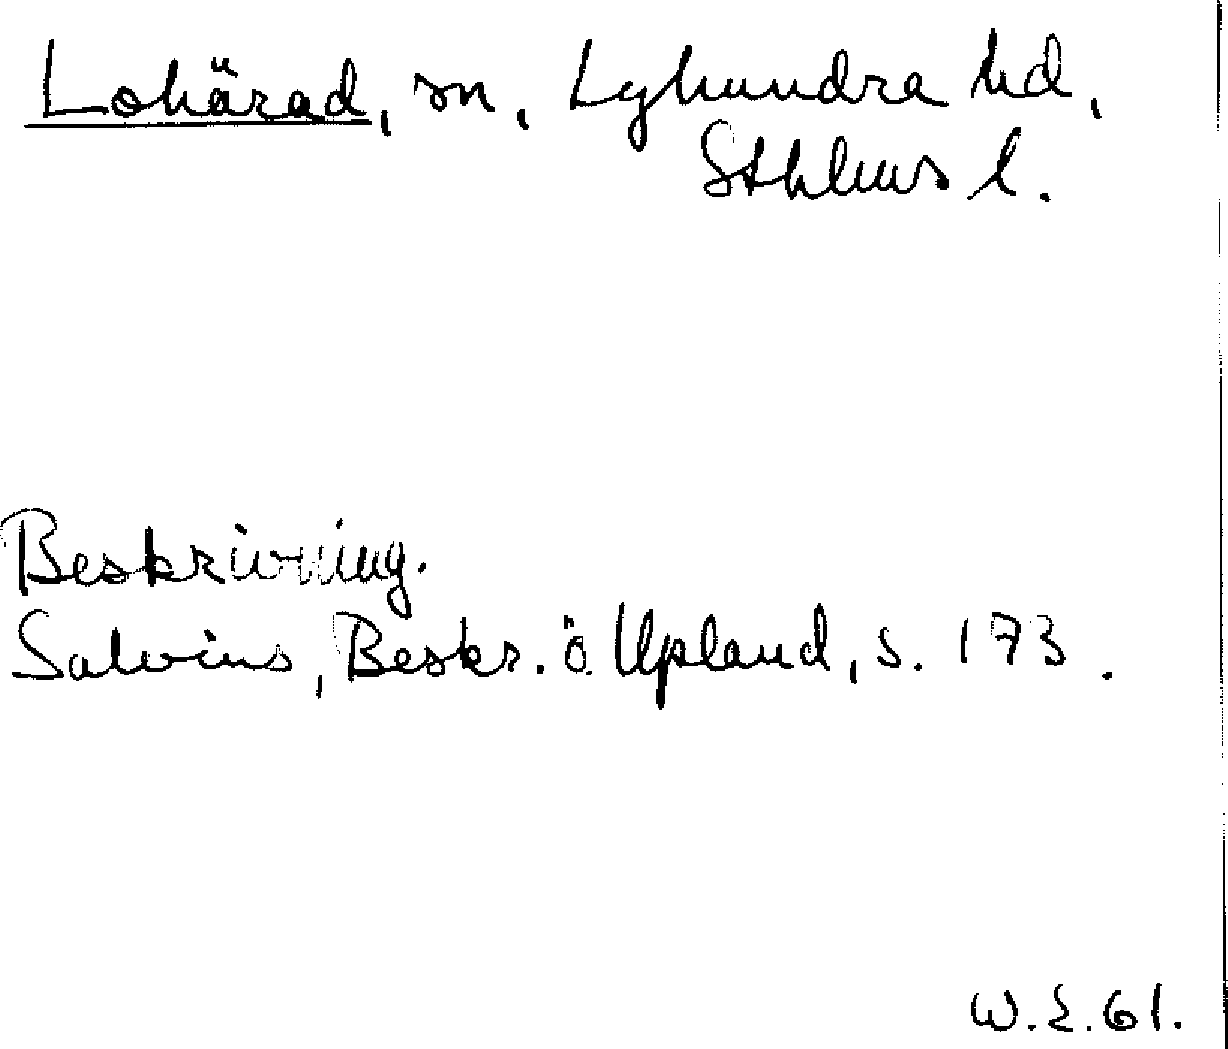 Lohärad, sn, Lyhundra hd,
Sthlms l.
Beskrivning.
Salvius, Beskr. ö. Upland, s. 173.
W.E.61.